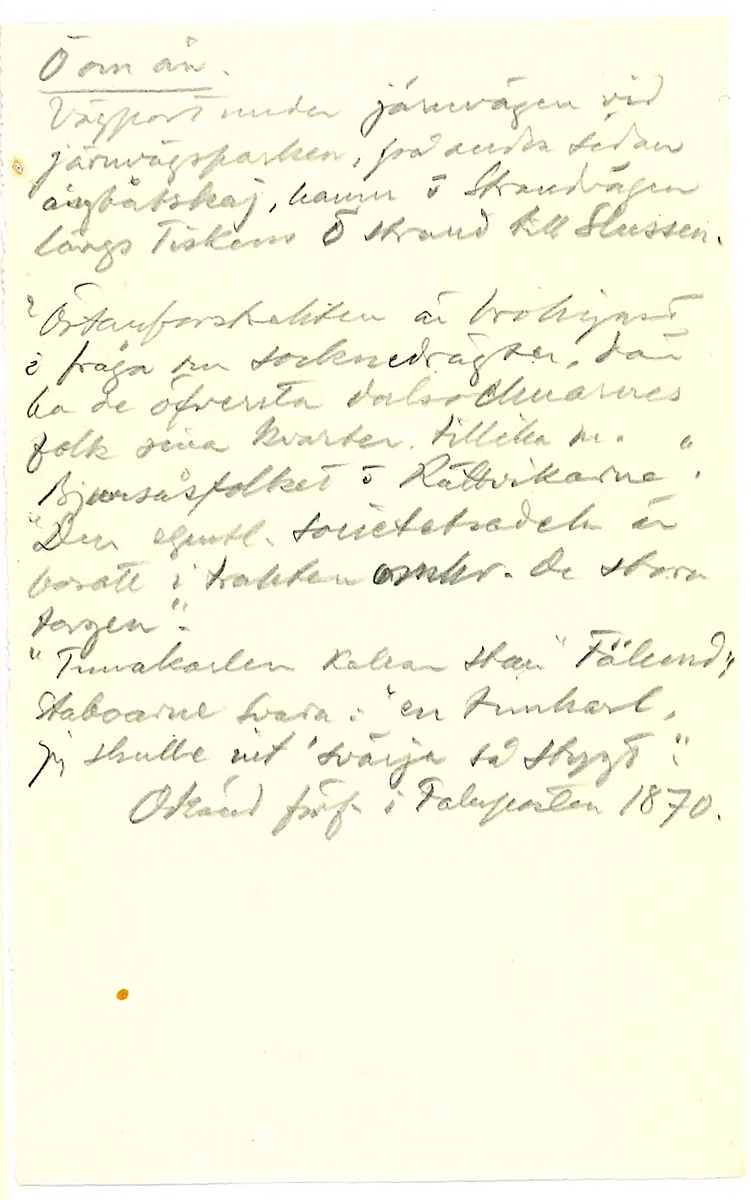 Ö om ån.
Vägport under järnvägen vid
järnvägsparken, på andra sidan
ångbåtskaj, hamn o Strandvägen
längs Tiskens Ö strand till Slussen.
"Östanforstrakten är brokigast
i fråga om socknedrägter, där
ha de öfversta dalsocknarnes
folk sina kvarter tillika m.
Bjursåsfolket o Rättvikarne".
"Den egentl. societetsdeln är
bosatt i trakten omkr. de stora
torgen".
"Tunakarlen kallar stan "Fälund",
Staboarne svara: "en tunkarl,
skulle int' svärja så stygt".
Okänd förf. i Faluposten 1870.